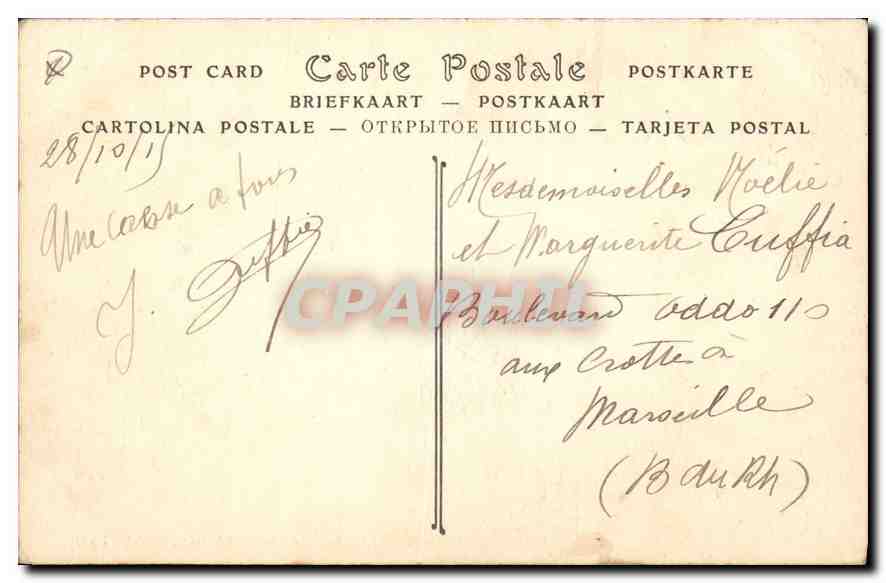 POST CARD Carte Postale POSTKARTE
BRIEFKAART — POSTKAART
CARTOLINA POSTALE — ОТКРЫТОЕ ПИСЬМО — TARJETA POSTAL
28/10/15
Une à tous
J.
Mesdemoiselles Noélie
et Marguerite Cuffia
Boulevard Oddo 110
aux Crottes à
Marseille
(B du Rh)
CPAPHIL